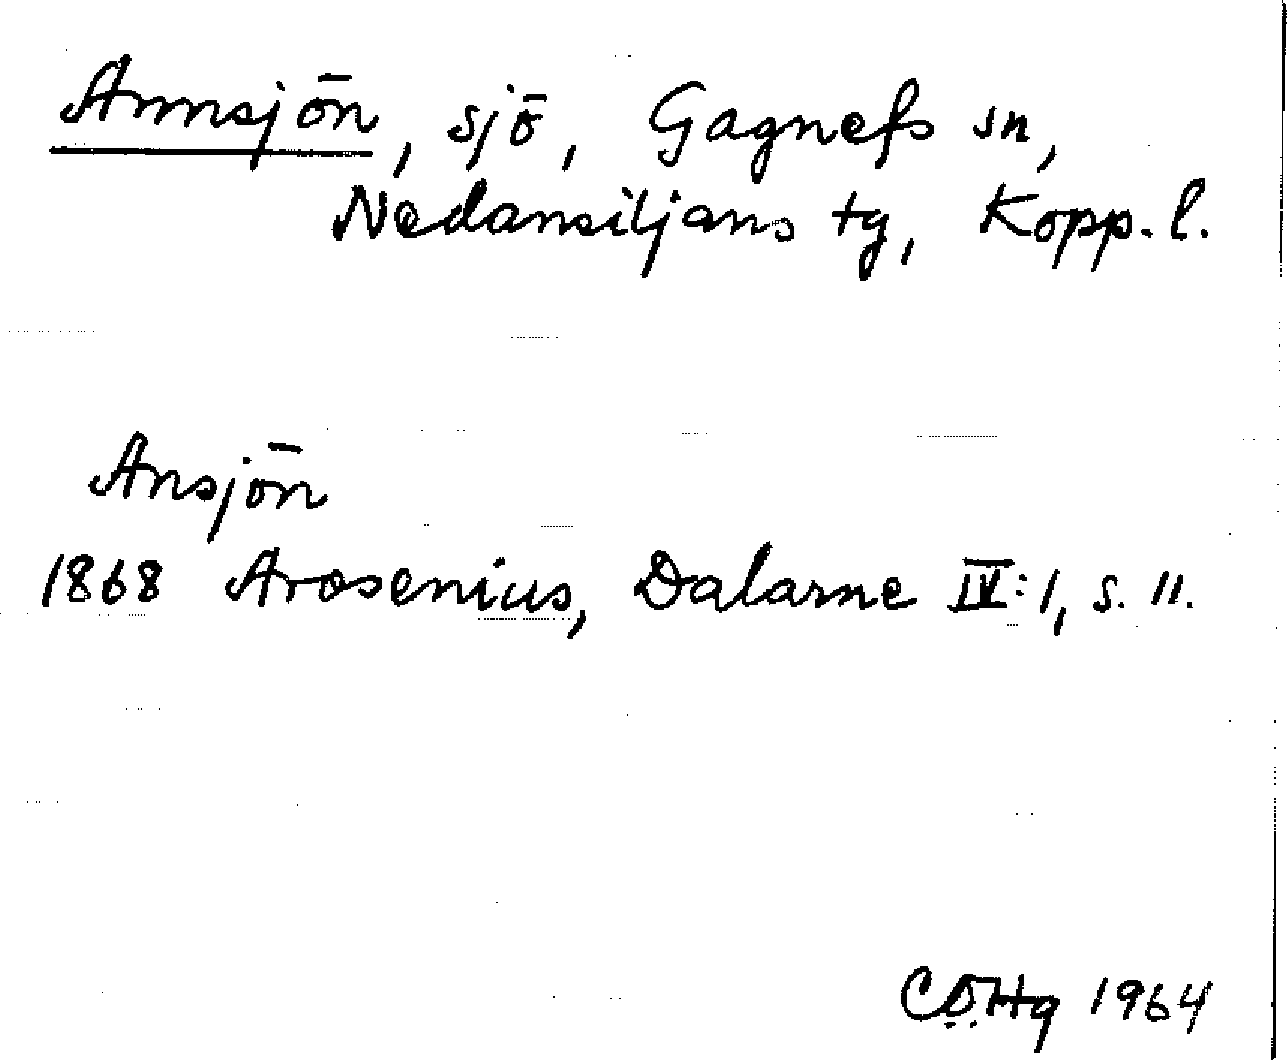 Annsjön, sjö, Gagnefs sn,
Nedansiljans tg, Kopp. l.
Ansjön
1868 Arosenius, Dalarne IV:1, s. 11.
1964